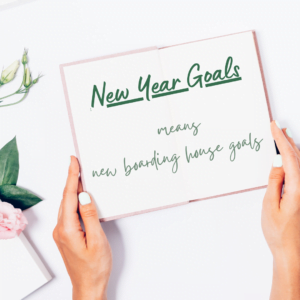 New Year Goals
means
new boarding house goals